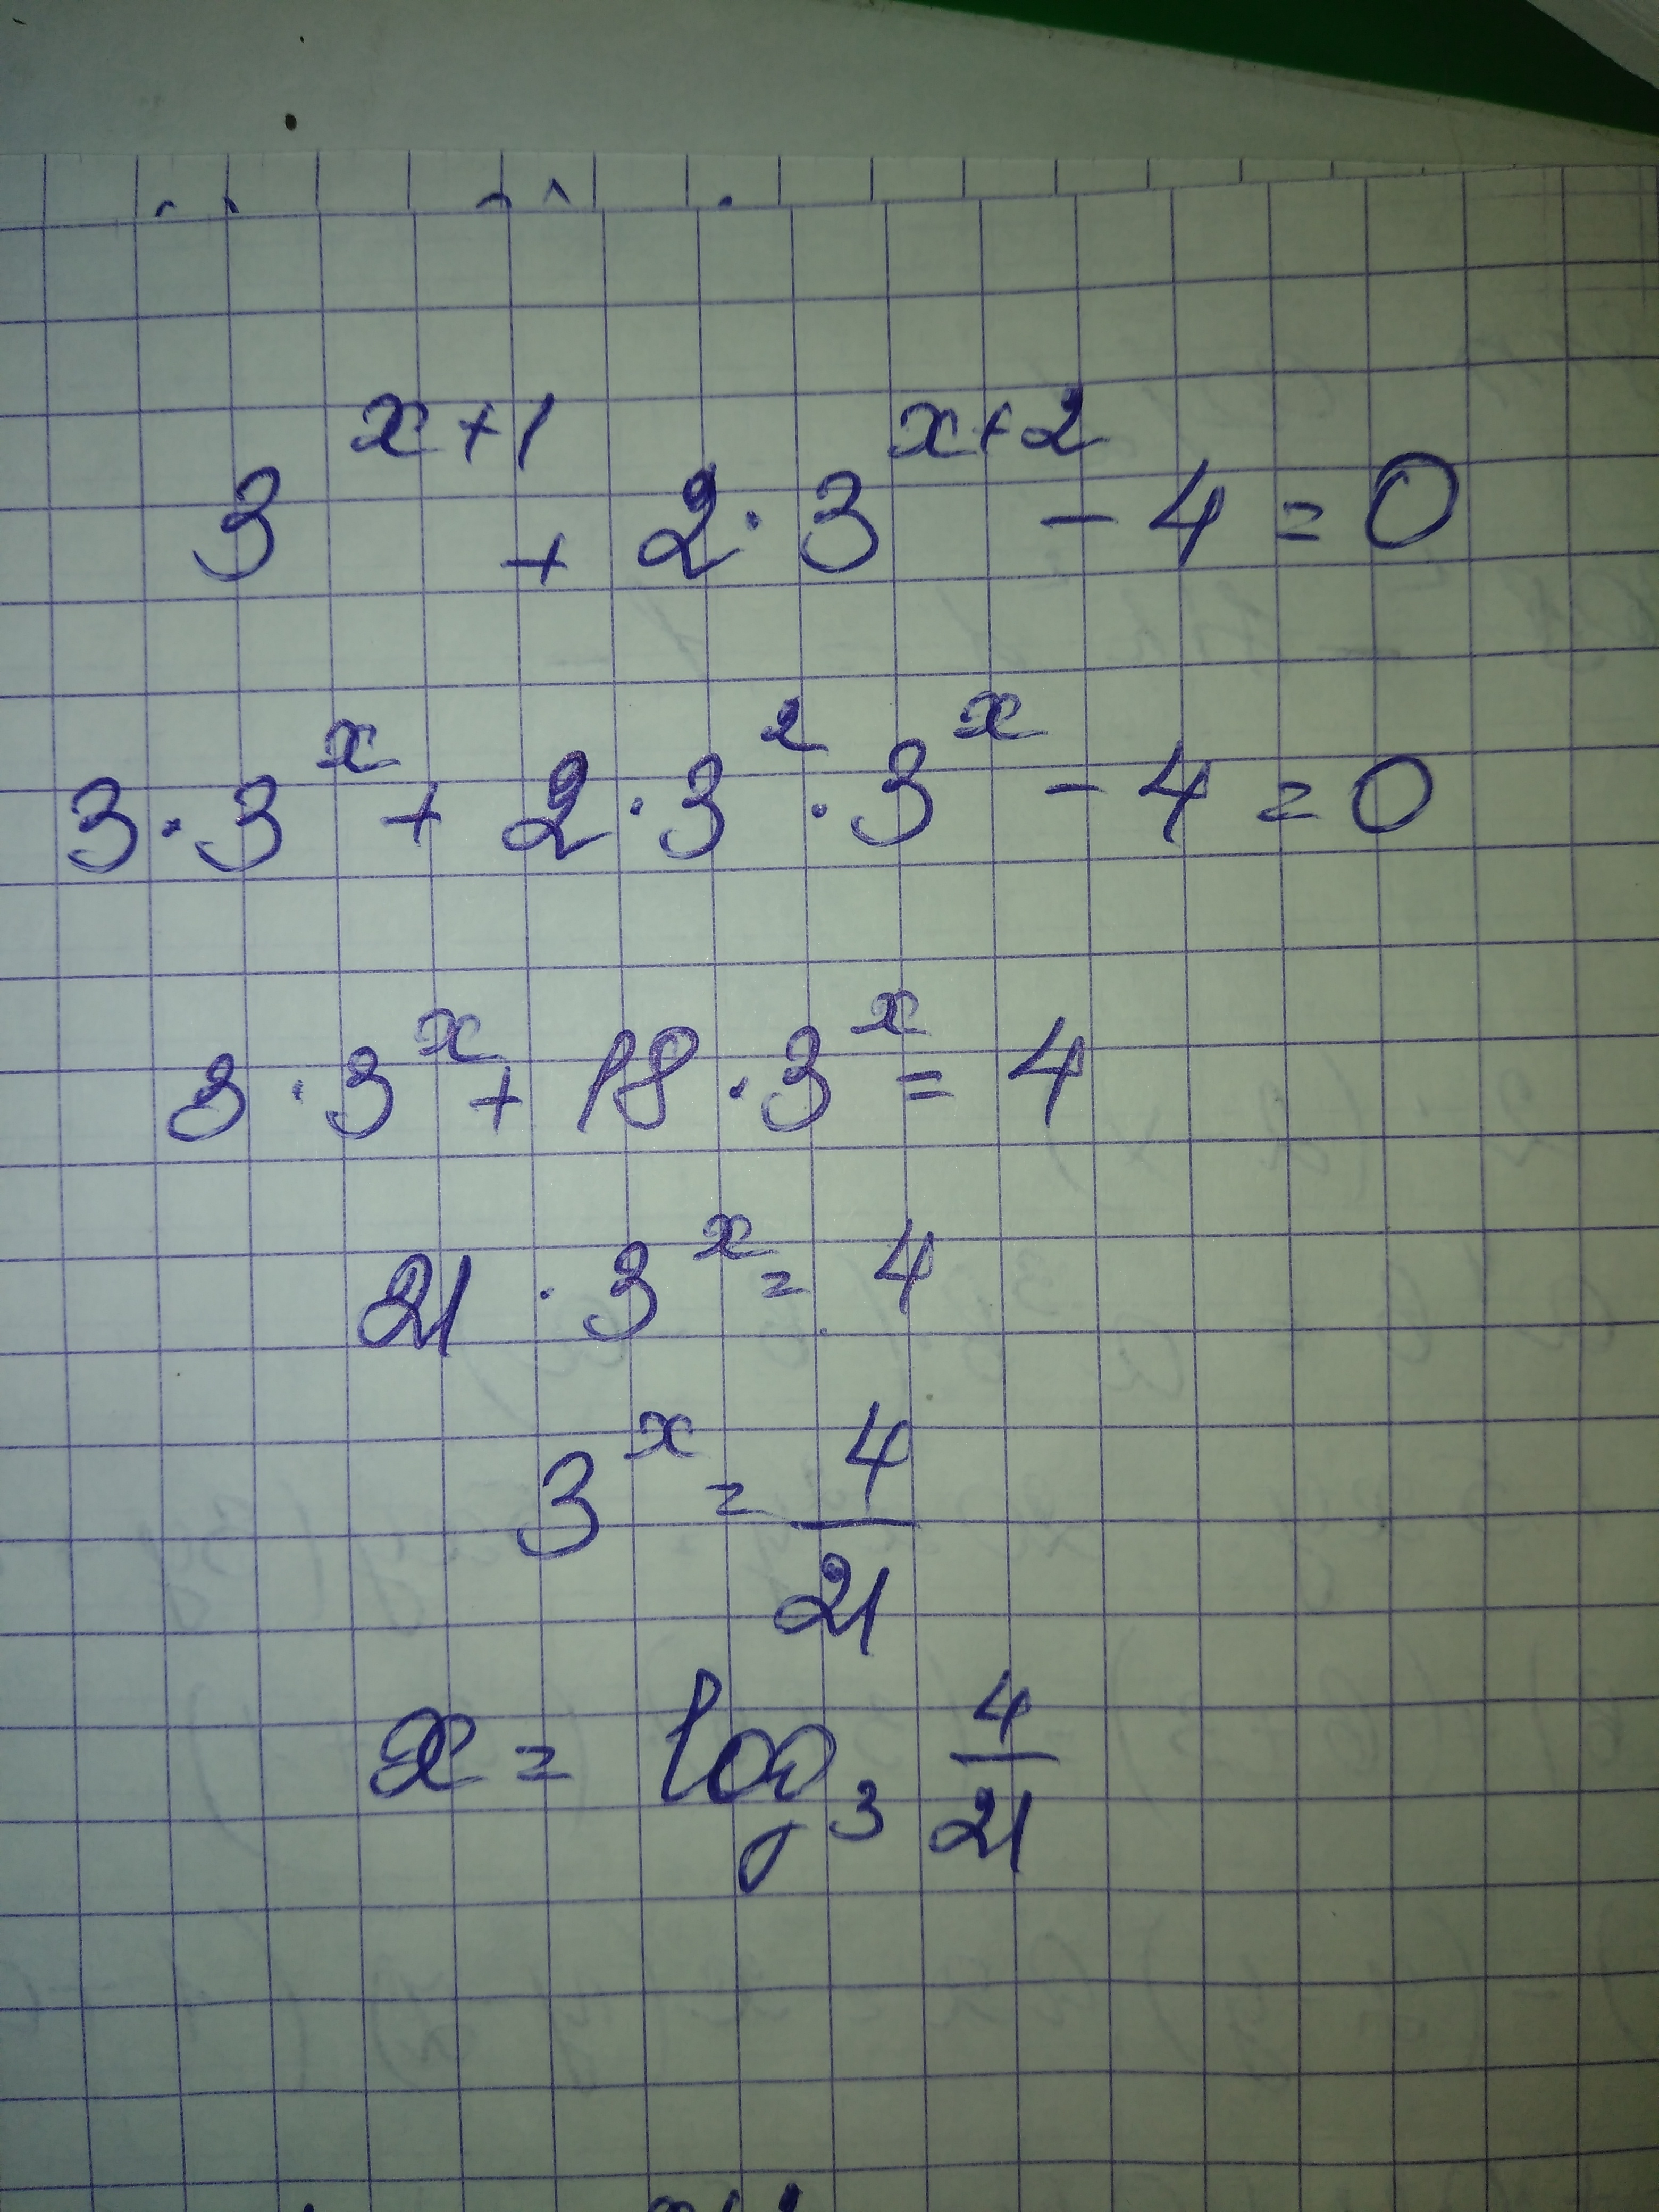 3^{x+1} + 2 · 3^{x+2} - 4 = 0
3 · 3^x + 2 · 3^2 · 3^x - 4 = 0
3 · 3^x + 18 · 3^x = 4
21 · 3^x = 4
3^x = \frac{4}{21}
x = log_3 \frac{4}{21}